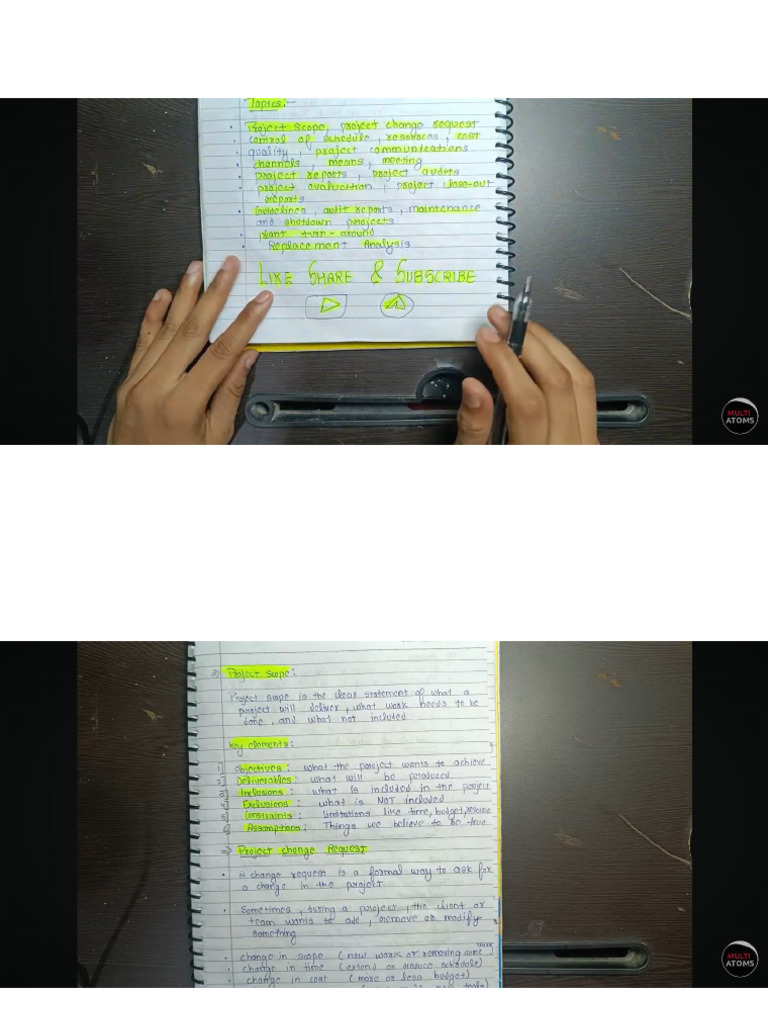 Topics:-
• Project Scope, project change request
• control of schedule, resources, cost
quality, project communications
• channels, means, meeting
• project reports, project audits
• project evaluation, project close-out
reports
• guidelines, audit reports, maintenance
and shutdown projects
• plant turn-around
• Replacement Analysis
LIKE SHARE & SUBSCRIBE
MULTI
ATOMS
Project Scope:
Project scope is the clear statement of what a
project will deliver, what work needs to be
done, and what not included
key elements:
1] Objectives: what the project wants to achieve
2] Deliverables: what will be produced
3] Inclusions: what is included in the project
4] Exclusions: what is NOT included
5] Constraints: limitations like time, budget, resource
6] Assumptions: Things we believe to be true
Project change Request
• A change request is a formal way to ask for
a change in the project
• Sometimes, during a project, the client or
team wants to add, remove or modify
something
• change in scope (new work or removing some work)
• change in time (extend or reduce schedule)
• change in cost (more or less budget)
MULTI
ATOMS